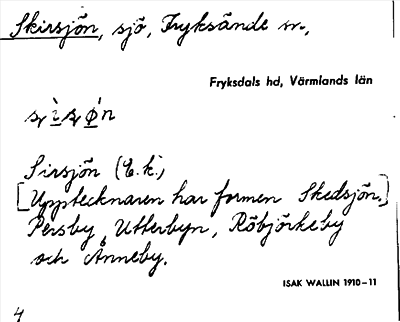 Skirsjön, sjö, Fryksände sn.,
Fryksdals hd, Värmlands län
Sirsjön (E.k.)
[Upptecknaren har formen Skedsjön.]
Persby, Utterbyn, Röbjörkeby
och Ånneby.
ISAK WALLIN 1910–11
4